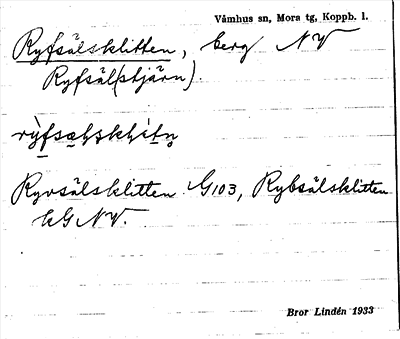 Våmhus sn, Mora tg, Koppb. l.
Ryfsälsklitten, berg NV
Ryfsäl(stjärn).
Ryvsälsklitten G103, Rybsälsklitten
kGNV.
Bror Lindén 1933